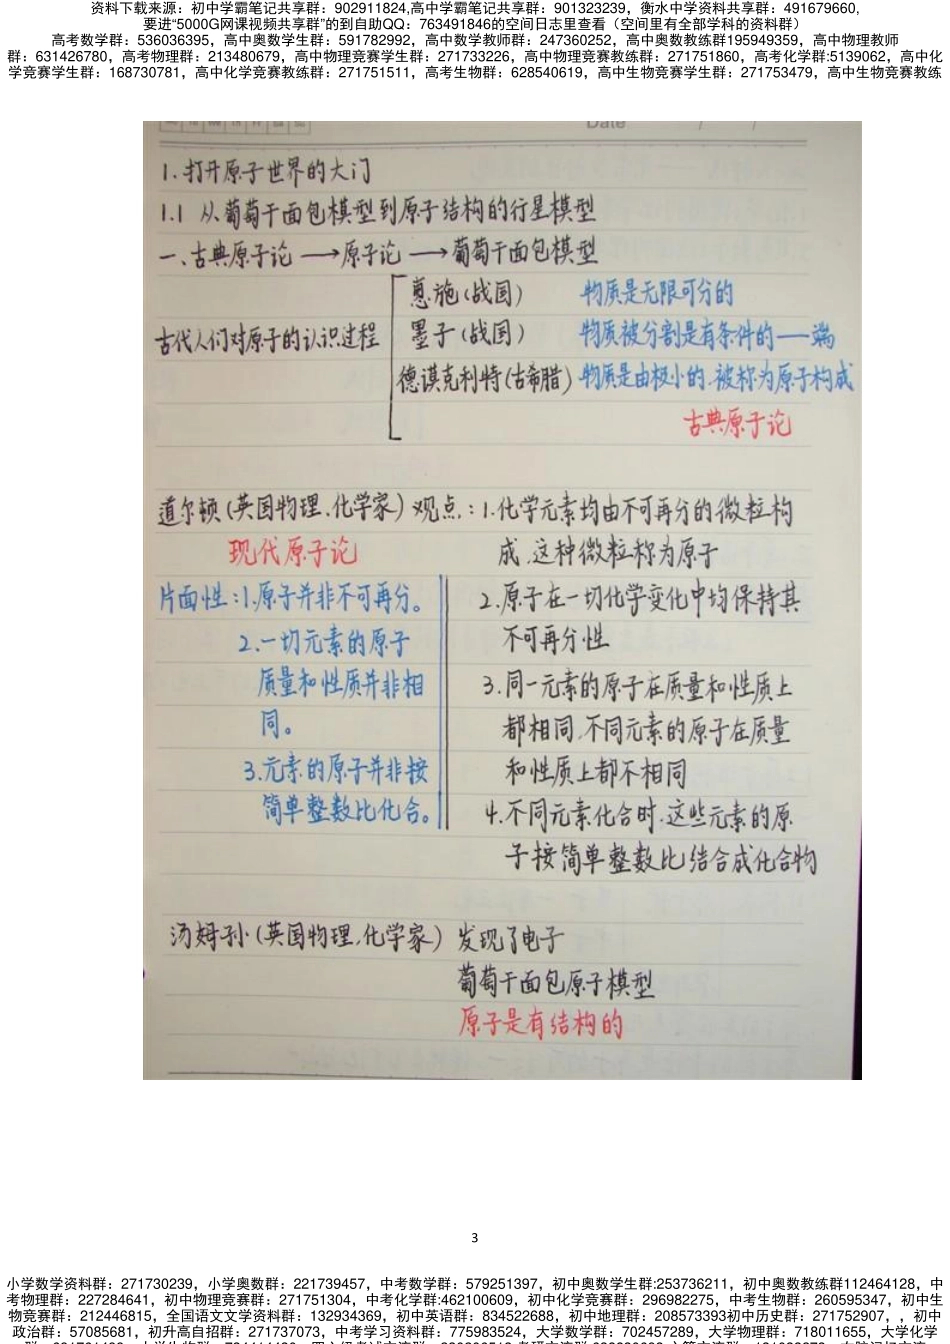 资料下载来源：初中学霸笔记共享群：902911824,高中学霸笔记共享群：901323239，衡水中学资料共享群：491679660,
要进“5000G网课视频共享群”的到自助QQ：763491846的空间日志里查看（空间里有全部学科的资料群）
高考数学群：536036395，高中奥数学生群：591782992，高中数学教师群：247360252，高中奥数教练群195949359，高中物理教师
群：631426780，高考物理群：213480679，高中物理竞赛学生群：271733226，高中物理竞赛教练群：271751860，高考化学群:5139062，高中化
学竞赛学生群：168730781，高中化学竞赛教练群：271751511，高考生物群：628540619，高中生物竞赛学生群：271753479，高中生物竞赛教练
Date / /
1.打开原子世界的大门
1.1 从葡萄干面包模型到原子结构的行星模型
一、古典原子论→原子论→葡萄干面包模型
惠施(战国) 物质是无限可分的
古代人们对原子的认识过程 墨子(战国) 物质被分割是有条件的——端
德谟克利特(古希腊) 物质是由极小的、被称为原子构成
古典原子论
道尔顿(英国物理、化学家)观点：1.化学元素均由不可再分的微粒构
现代原子论 成,这种微粒称为原子
片面性：1.原子并非不可再分。 2.原子在一切化学变化中均保持其
2.一切元素的原子 不可再分性
质量和性质并非相 3.同一元素的原子在质量和性质上
同。 都相同,不同元素的原子在质量
3.元素的原子并非按 和性质上都不相同
简单整数比化合。 4.不同元素化合时,这些元素的原
子按简单整数比结合成化合物
汤姆孙(英国物理、化学家) 发现了电子
葡萄干面包原子模型
原子是有结构的
3
小学数学资料群：271730239，小学奥数群：221739457，中考数学群：579251397，初中奥数学生群:253736211，初中奥数教练群112464128，中
考物理群：227284641，初中物理竞赛群：271751304，中考化学群:462100609，初中化学竞赛群：296982275，中考生物群：260595347，初中生
物竞赛群：212446815，全国语文文学资料群：132934369，初中英语群：834522688，初中地理群：208573393初中历史群：271752907，，初中
政治群：57085681，初升高自招群：271737073，中考学习资料群：775983524，大学数学群：702457289，大学物理群：718011655，大学化学